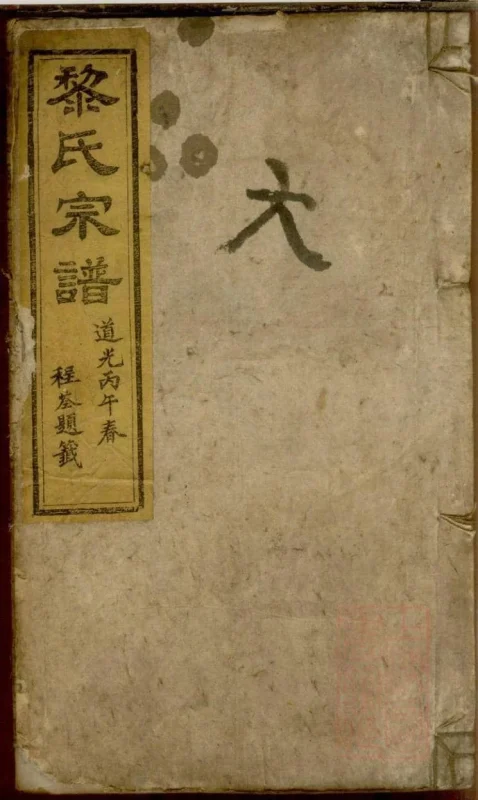 六
黎氏宗譜
道光丙午春
程荃題籤